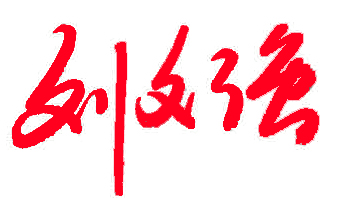 刘文强